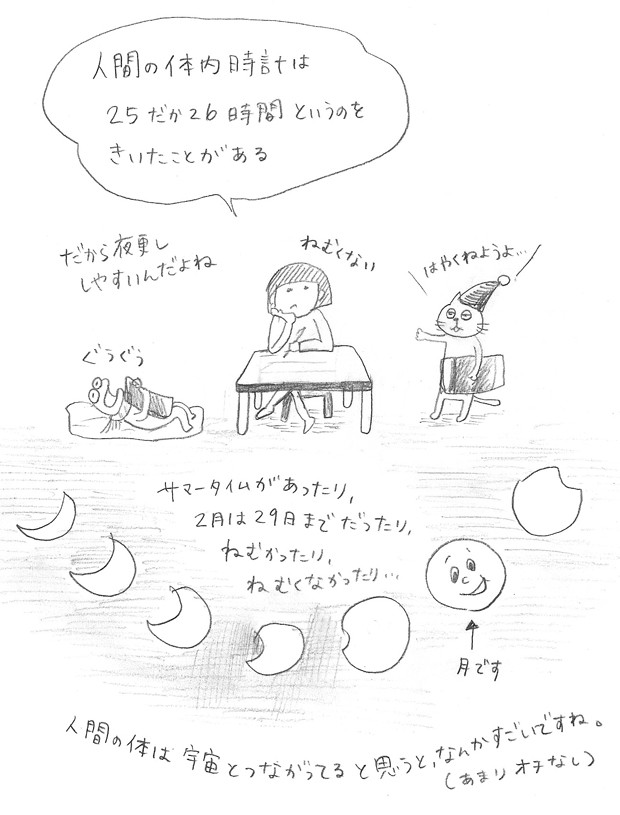 人間の体内時計は
25だか26時間というのを
きいたことがある
だから夜更し
しやすいんだよね
ねむくない
はやくねようよ…
ぐうぐう
サマータイムがあったり、
2月は29日までだったり、
ねむかったり、
ねむくなかったり…
月です
人間の体は宇宙とつながってると思うと、なんかすごいですね。
(あまりオチなし)